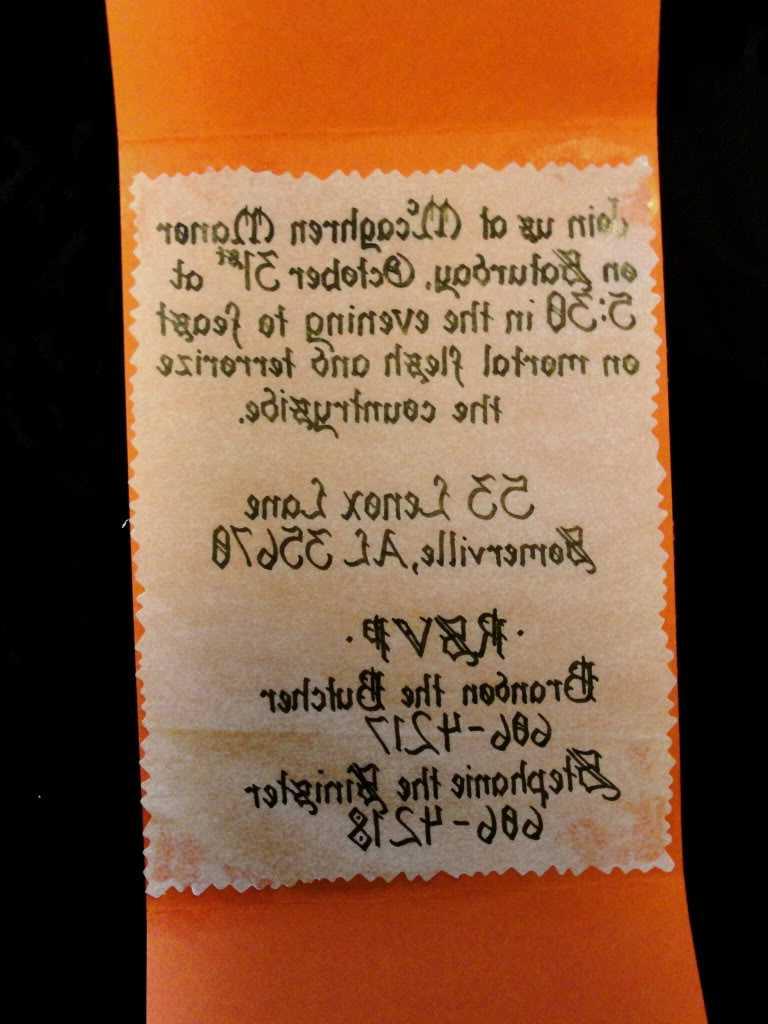 Join us at McCaghren Manor
on Saturday, October 31st at
5:30 in the evening to feast
on mortal flesh and terrorize
the countryside.
53 Lenox Lane
Somerville, AL 35670
· RSVP ·
Brandon the Butcher
606-4217
Stephanie the Sinister
606-4218